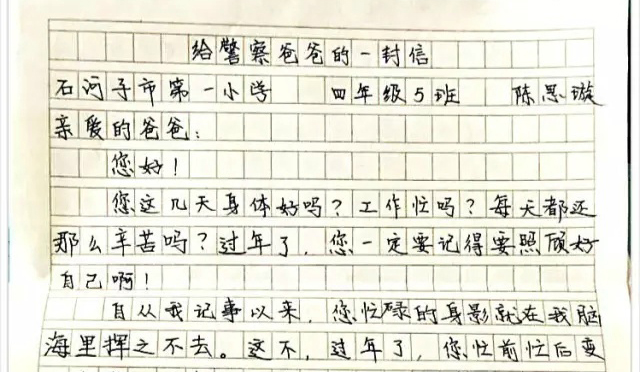 给警察爸爸的一封信
石河子市第一小学 四年级5班 陈思璇
亲爱的爸爸：
您好！
您这几天身体好吗？工作忙吗？每天都还
那么辛苦吗？过年了，您一定要记得要照顾好
自己啊！
自从我记事以来，您忙碌的身影就在我脑
海里挥之不去。这不，过年了，您忙前忙后要